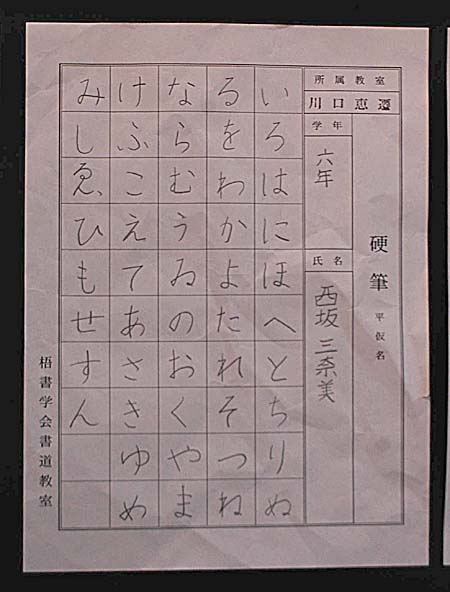 所属教室
川口恵遷
硬筆 平仮名
学年
六年
氏名
西坂三奈美
いろはにほへとちりぬ
るをわかよたれそつね
ならむうゐのおくやま
けふこえてあさきゆめ
みしゑひもせすん
梧書学会書道教室